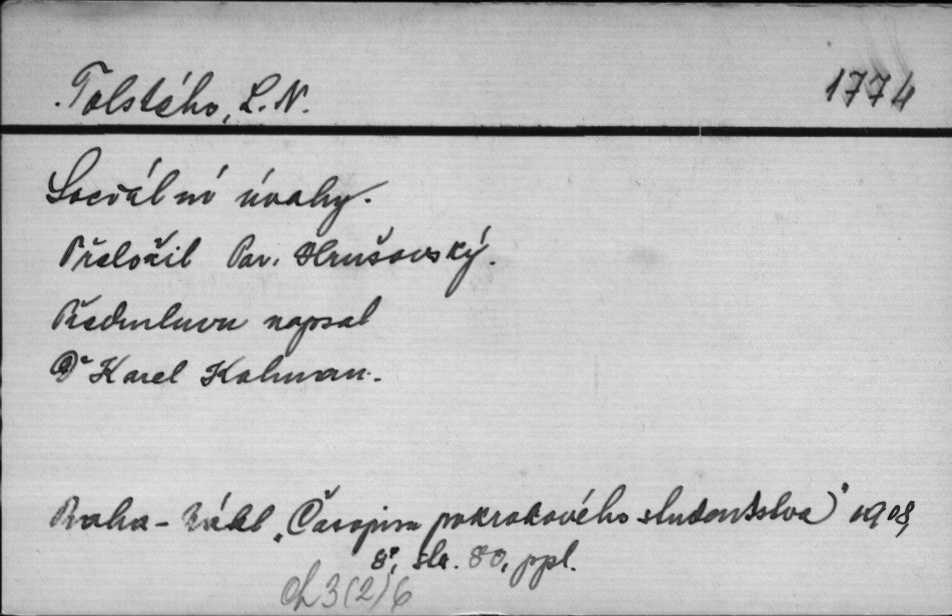 Tolstého, L. N. 1774
Sociální úvahy.
Přeložil Par. Hrušovský.
Předmluvu napsal
Dr Karel Kalman.
Praha - Nákl. „Časopisu pokrokového studentstva" 1908,
8°, str. 80, ppl.
Ch 3(2)6